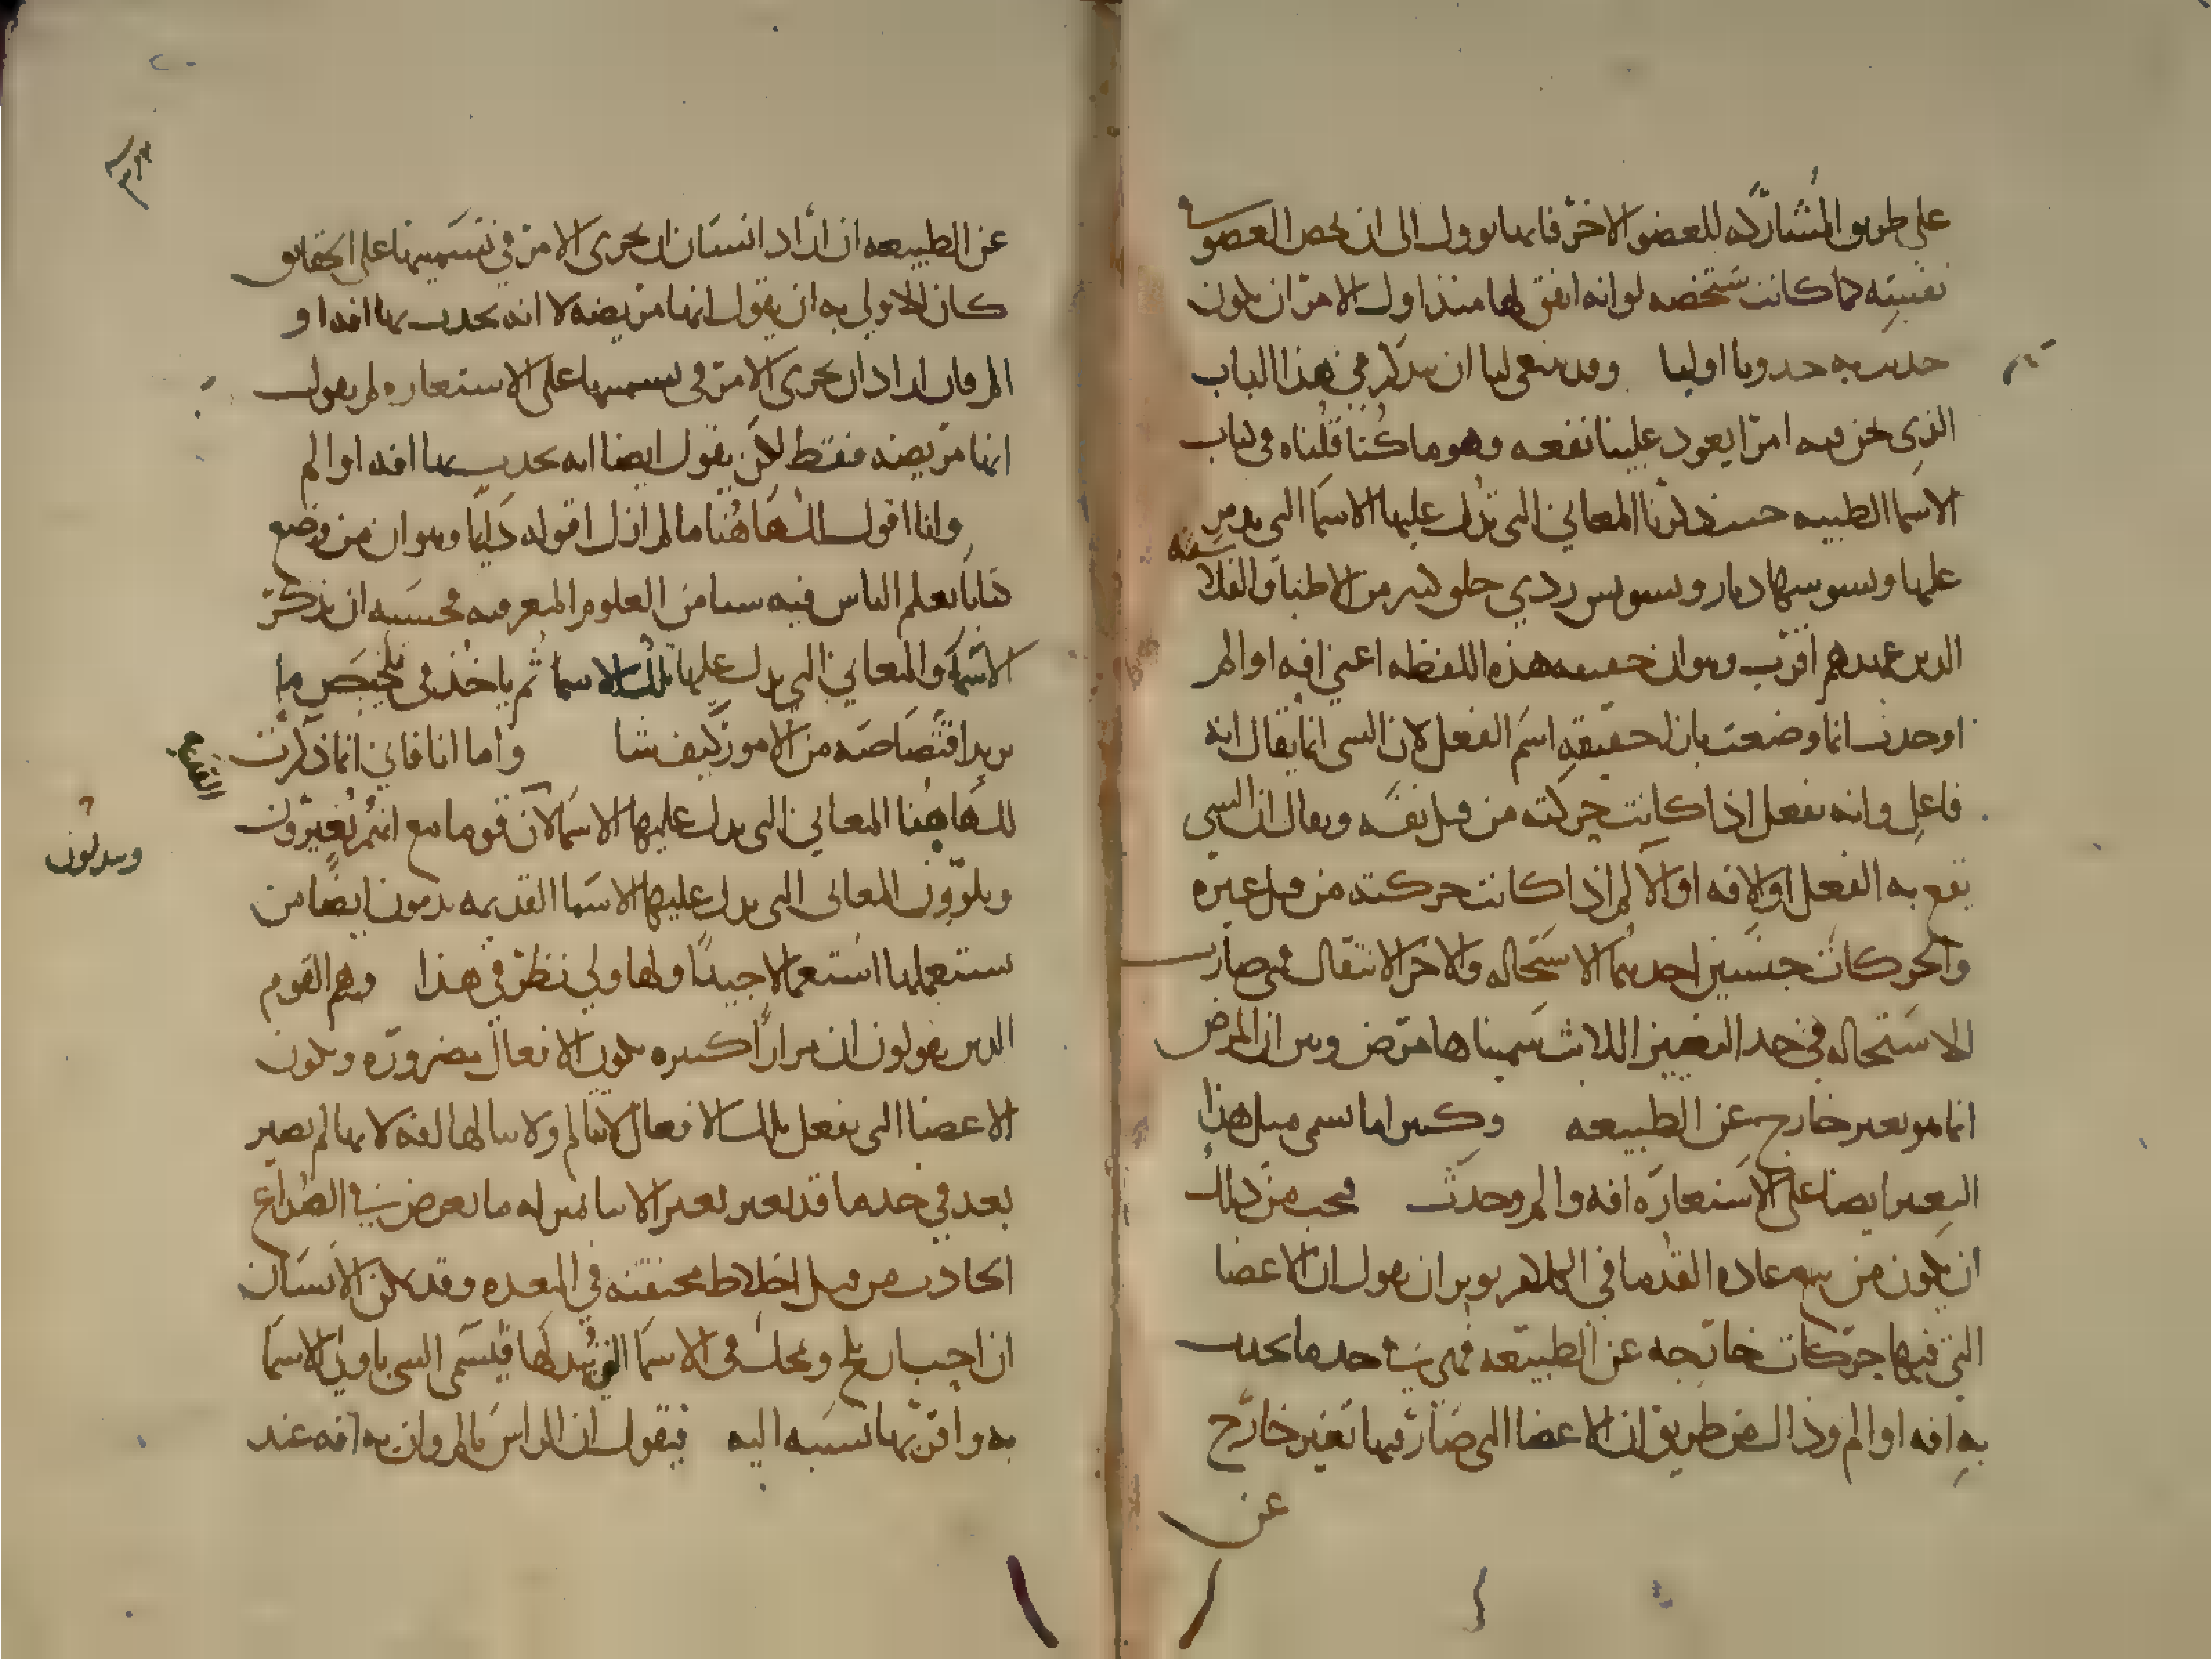 على طريق المشاركه للعضو الاخر فانها توول الى ان تخص العضو في
نفسه كما كانت ستخصه لو انه اتفق لها منذ اول الامر ان تكون
حدثت به حدوثا اوليا وقد ينبغي لنا ان نذكر في هذا الباب
الذي نحن فيه امرا يعود علينا نفعه وهو ما كنا قلناه في كتاب
الاسما الطبيه حيث ذكرنا المعاني التي تدل عليها الاسما التي
عليها خلق كثير من الاطبا والفلاسفه
الذين عندهم اقرب وهو ان حقيقه هذه اللفظه اعني افه او الم
او حدث انما وضعت بازا حقيقه اسم الفعل لان الشي انما يقال انه
فاعل وانه يفعل اذا كانت حركته من قبل نفسه ويقال ان الشي
يقع به الفعل او الافه او الالم اذا كانت حركته من قبل غيره
والحركات جنسين احدهما الاستحاله والاخر الانتقال فمتى صارت
الاستحاله في حد التغيير اللابث سميناها مرض وبين ان المرض
انما هو تغير خارج عن الطبيعه وكثيرا ما نسمي مثل هذا
التغير ايضا على الاستعاره افه والم وحدث فيجب من ذلك
ان يكون من عاده القدما في الكلام يوثر ان يقول ان الاعضا
التي فيها حركات خارجه عن الطبيعه فهي في حد ما يحدث
به افه او الم وذلك من طريق ان الاعضا التي صار فيها تغير خارج
عن
عن الطبيعه ان اراد انسان ان يجري الامر في تسميتها على الحقايق
كان الاولى به ان يقول انها مريضه لا انه يحدث بها افه او
الم فان اراد ان يجري الامر في تسميتها على الاستعاره لم يقول
انها مريضه فقط لكن يقول ايضا انه يحدث بها افه او الم
وانا اقول لك هاهنا ما لم ازل اقوله دايما وهو ان من وضع
كتابا يعلم الناس فيه شيا من العلوم والمعرفه فحسبه ان يذكر
الاسما والمعاني التي تدل عليها تلك الاسما ثم ياخذ في تلخيص ما
يريد اقتصاصه من الامور كيف شا واما انا فاني انما ذكرت
لك هاهنا المعاني التي تدل عليها الاسما لان قوما مع انهم يغيرون
ويبدلون
ويلوون المعاني التي تدل عليها الاسما القديمه يذمون ايضا من
يستعملها استعمالا جيدا ولها ولي نظر في هذا وهم القوم
الذين يقولون ان مرارا كثيره تكون الافعال مضروره وتكون
الاعضا التي تفعل تلك الافعال لا تالم ولا ينالها افه لانها لم تصير
بعد في حد ما قد تغير تغيرا لابثا بمنزله ما يعرض في الصداع
الحادث من قبل اخلاط محتقنه في المعده وقد يمكن الانسان
ان احب ان في الاسما فيسمي الشي باولى الاسما
به واقربها نسبه اليه فيقول ان الراس يالم وان به افه عند